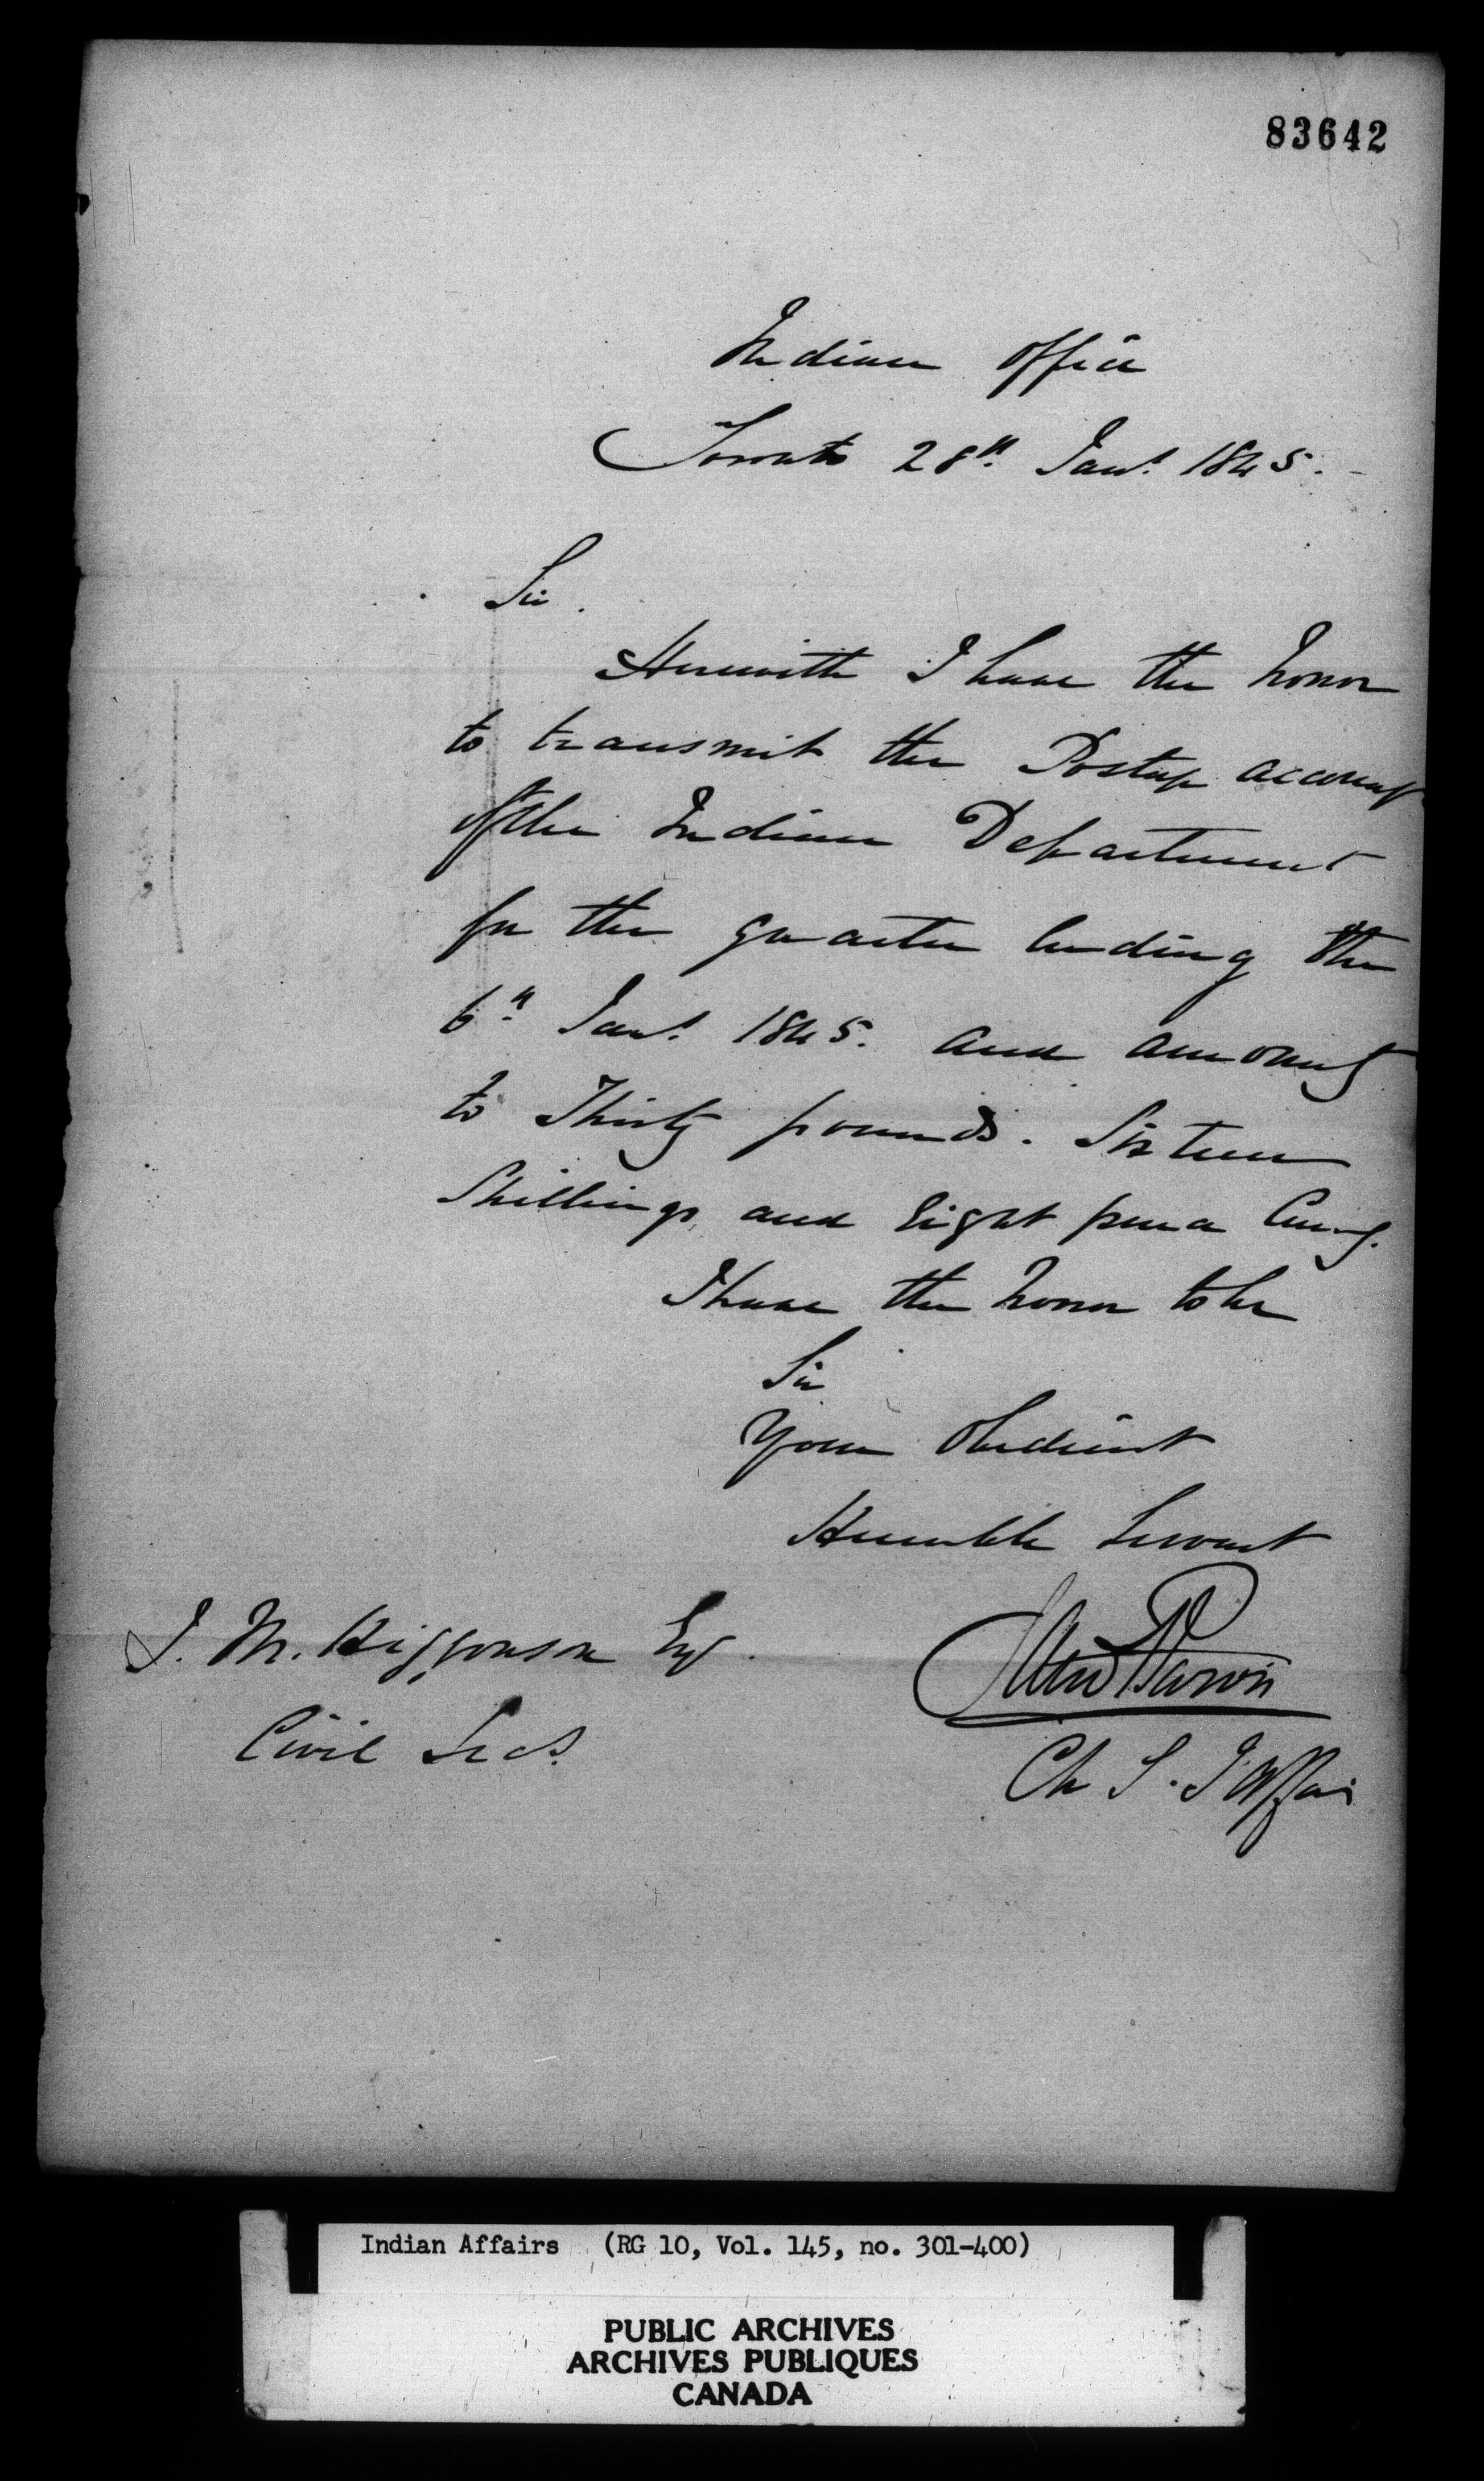 83642
Indian Office
Toronto 28th Jany 1845.
Sir.
Herewith I have the honor
to transmit the Postage account
of the Indian Department
for the quarter ending the
6th Jany 1845. and amounts
to Thirty pounds. Sixteen
Shillings and Eight pence Curcy.
I have the honor to be
Sir
Your Obedient
Humble Servant
J. M. Higginson Esqr.
Civil Secy
Ch S. I Affairs
Indian Affairs (RG 10, Vol. 145, no. 301-400)
PUBLIC ARCHIVES
ARCHIVES PUBLIQUES
CANADA